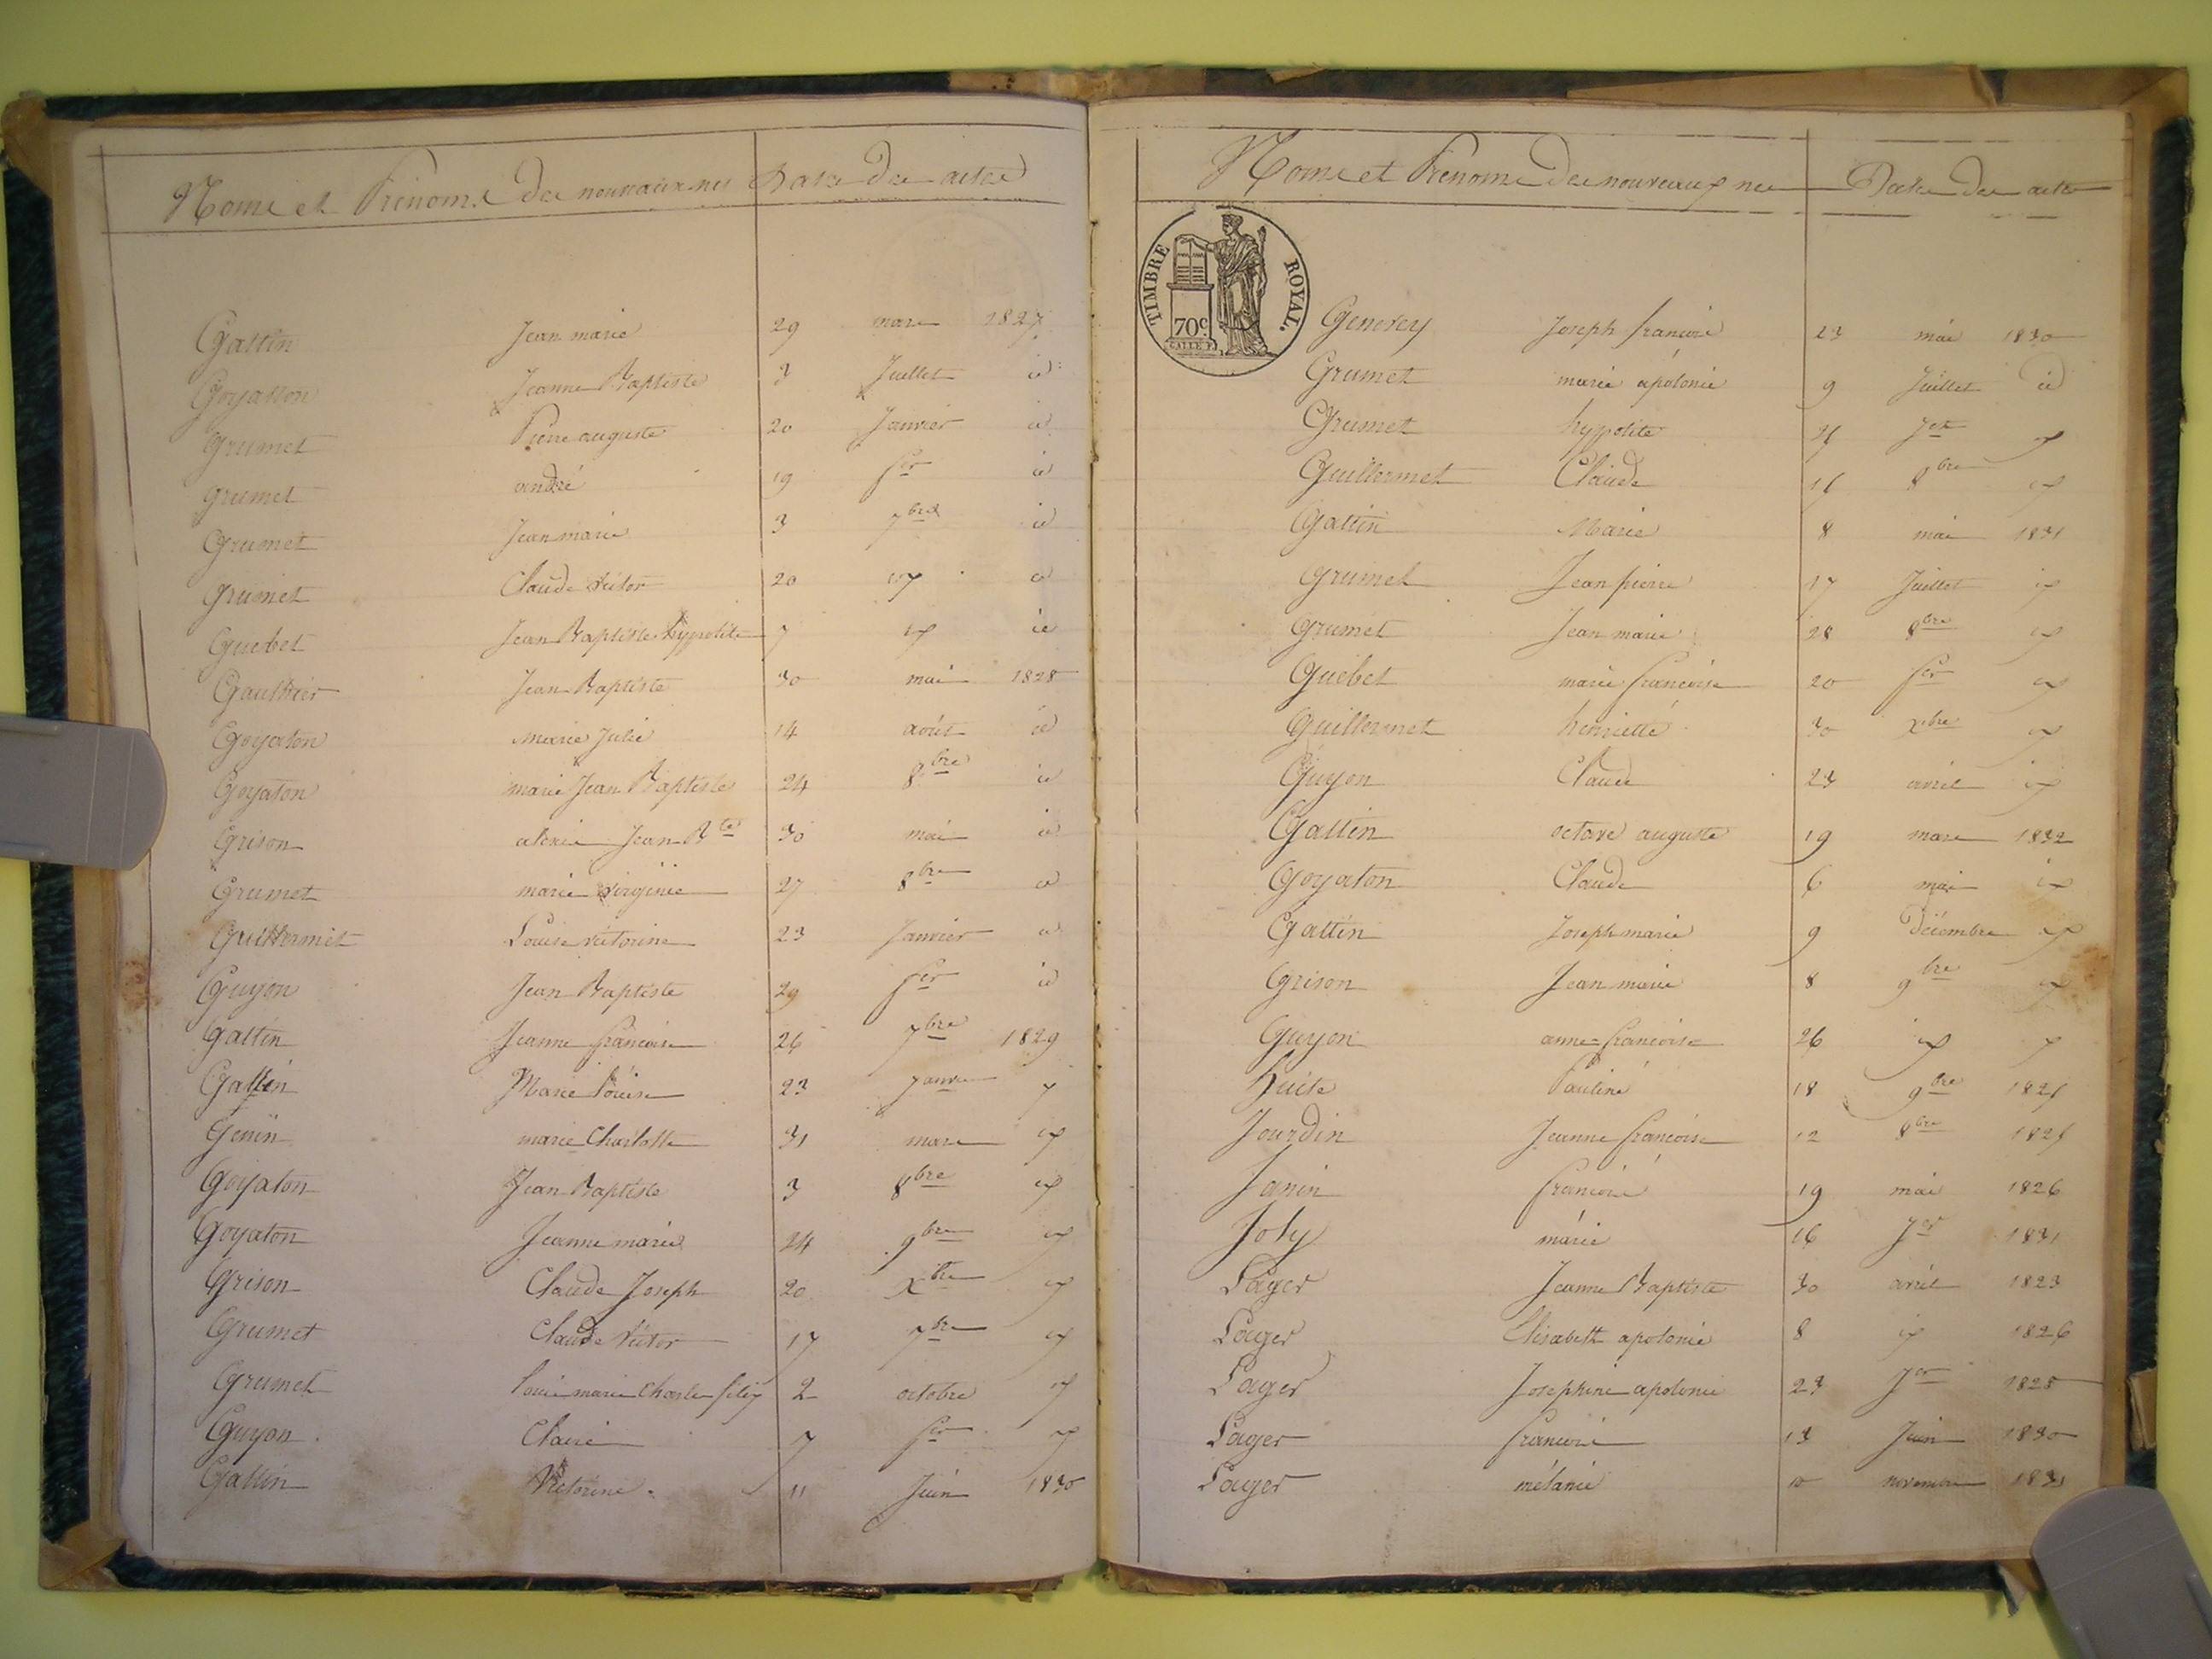 Noms et Prénoms des nouveaux nés Date des actes
Gallin Jean marie 29 mars 1827
Goyatton Jeanne Baptiste 3 Juillet id
Grumet Pierre auguste 20 Janvier id
grumet andré 19 fer id
Grumet Jean marie 3 7bre id
Grumet Claude Victor 20 id id
Guebet Jean Baptiste hyppolite 7 id id
Gaulthier Jean Baptiste 30 mai 1828
Goyaton marie Julie 14 août id
Goyaton marie Jean Baptiste 24 8bre id
Grison alexis Jean Bte 30 mai id
Grumet marie virginie 27 8bre id
Guillermet Louise victorine 23 Janvier id
Guyon Jean Baptiste 29 fer id
Gallin Jeanne françoise 26 7bre 1829
Gallin Marie louise 23 Janvier
Genin marie Charlotte 31 mars id
Goyaton Jean Baptiste 3 8bre id
Goyaton Jeanne marie 24 9bre id
Grison Claude Joseph 20 Xbre id
Grumet Claude Victor 17 7bre id
Grumet louis marie Charles 2 octobre id
Guyon Claire 7 fer id
Gallin Victorine 11 Juin 1830
Noms et Prénoms des nouveaux nés Date des actes
TIMBRE ROYAL.
70c
Generey Joseph françois 23 mai 1830
Grumet marie apolonie 9 Juillet id
Grumet hyppolite Jer id
Guillermet Claude 8bre id
Gallin Marie 8 mai 1831
Grumet Jean pierre 17 Juillet id
Grumet Jean marie 28 8bre id
Guebet marie françoise 20 fer id
Guillermet henriette 30 Xbre id
Guyon Claude 23 avril id
Gallin octave auguste 19 mars 1832
Goyaton Claude 6 mai id
Gallin Joseph marie 9 Décembre id
Grison Jean marie 8 9bre id
Guyon anne=françoise 26 id
Huite Pauline 18 9bre
Jourdin Jeanne françoise 12 8bre
Janin françois 19 mai 1826
Joly marie 16 Jer 1831
Lager Jeanne Baptiste 30 avril 1823
Lager Elisabeth apolonie 8 id 1826
Lager Josephine apolonie 23 Jer 1828
Lager françois 13 Juin 1830
Lager mélanie 10 novembre 1831